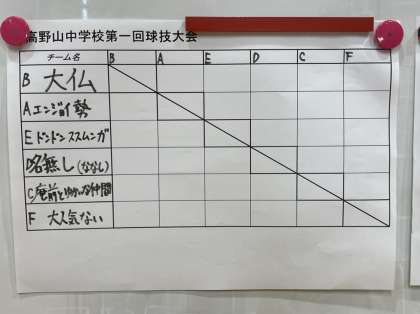 高野山中学校第一回球技大会
チーム名 B A E D C F
B 大仏
A エンジョイ勢
E ドンドンススムンガ
D 名無し(ななし)
C 前とゆかいな仲間
F 大人気ない